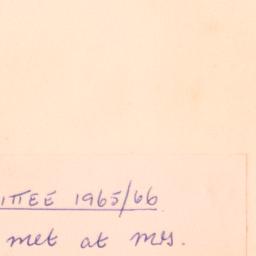 ITTEE 1965/66
met at mrs.